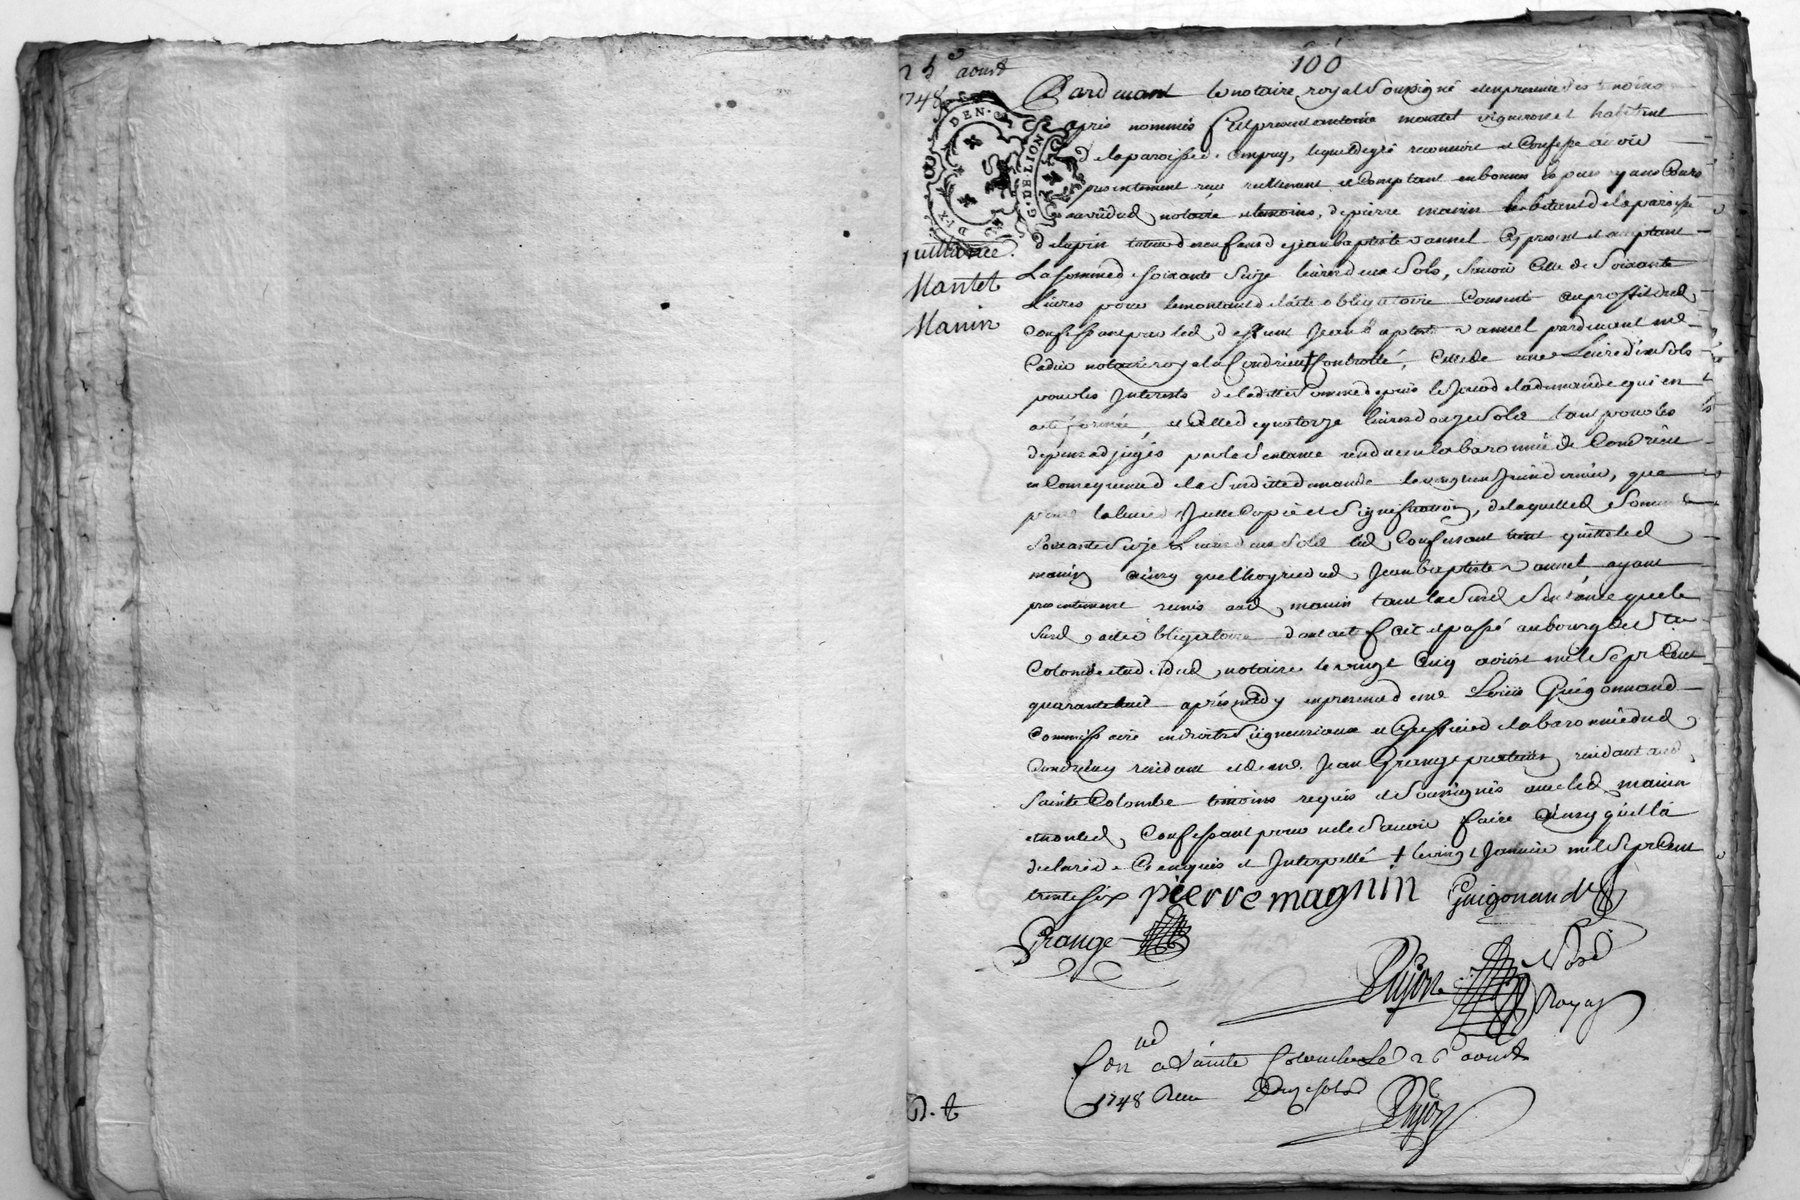 100
25e aoust
1748
DEN.
G. DE. LION
DIX
quittance
Mantet
Manin
Pardevant le notaire royal soussigné et en presence des temoins
apres nommés fut present antoine mantet vigneron et habitant
de la paroisse d'ampuy, lequel de gré reconnoit et confesse avoir
presentement receu reellement et comptant en bonnes especes ayans cours
au veû dud notaire et temoins, de pierre manin habitant de la paroisse
tuteur des enfans de jean baptiste vannel cy present et acceptant
La somme de soixante seize livres deux sols, scavoir celle de soixante
Livres pour le montant de l'acte obligatoire consent au proffit dud
confessant par led deffunt Jean Baptiste vannel pardevant me
notaire royal a Condrieu + controllé, celle de une Livre dix sols
pour les Interests de laditte somme depuis le jour de la demande qui en
a été formée, et celle de quatorze livres douze sols tant pour les
depens adjugés par la sentance rendue en la baronnie de Condrieu
en consequence de la susditte demande le vingt un Juin dernier, que
pour la levée Juste copie et signification, de laquelle somme de
soixante seize Livres deux sols led confessant tient quitte led
manin ainsy que l'hoyrie dud Jean baptiste vannel ayant
presentement remis aud manin tant la susd sentance que le
susd acte obligatoire dont acte fait et passé au bourg de Ste
Colombe etude dud notaire le vingt cinq aoust mil sept cent
quarante huit après midy en presence de me Loüis Guigonnand
Commissaire en droits seigneuriaux et Greffier de la baronnie dud
Condrieu residant et de me Jean Grange praticien residant aud
Sainte Colombe temoins requis et soussignés avec led manin
et non led confessant pour ne le scavoir faire ainsy qu'il l'a
declaré de ce enquis et Interpellé + le vingt Janvier mil sept cent
trente six pierre magnin Guigonand
Grange
Dujon No.re
Royal
Con.lé a Sainte Colombe Le 26e aoust
1748 Receu Douze sols
Dujon